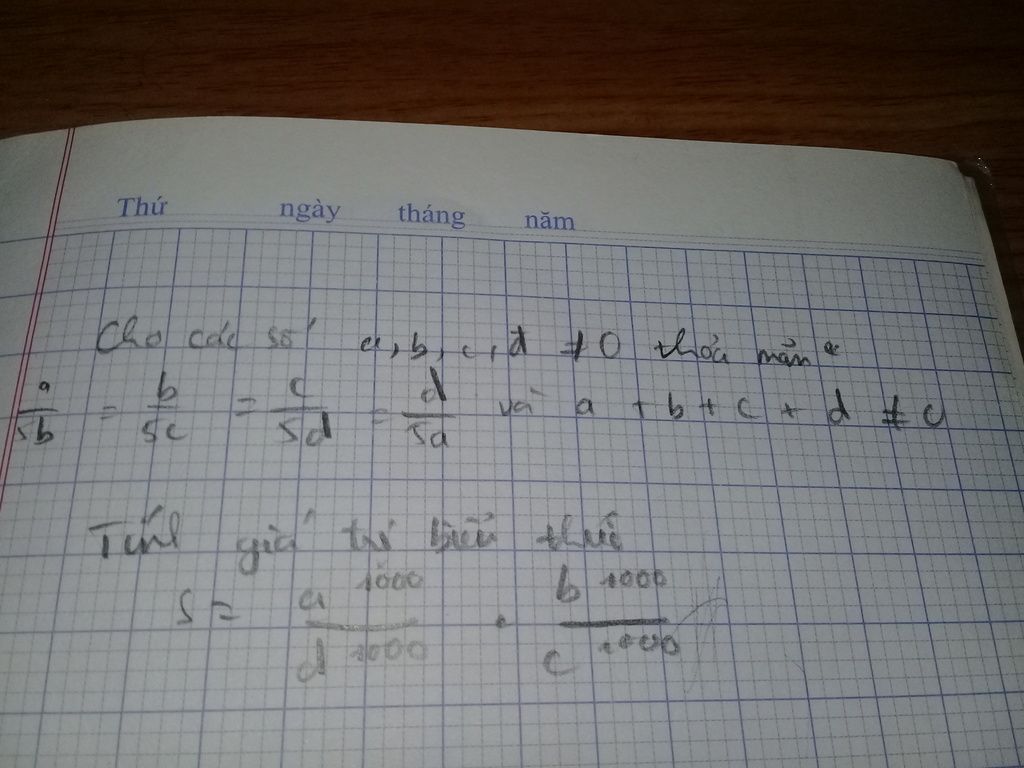 Thứ ngày tháng năm
Cho các số a, b, c, d ≠ 0 thỏa mãn
a/5b = b/5c = c/5d = d/5a và a + b + c + d ≠ 0
Tính giá trị biểu thức
S = a^1000/d^1000 . b^1000/c^1000